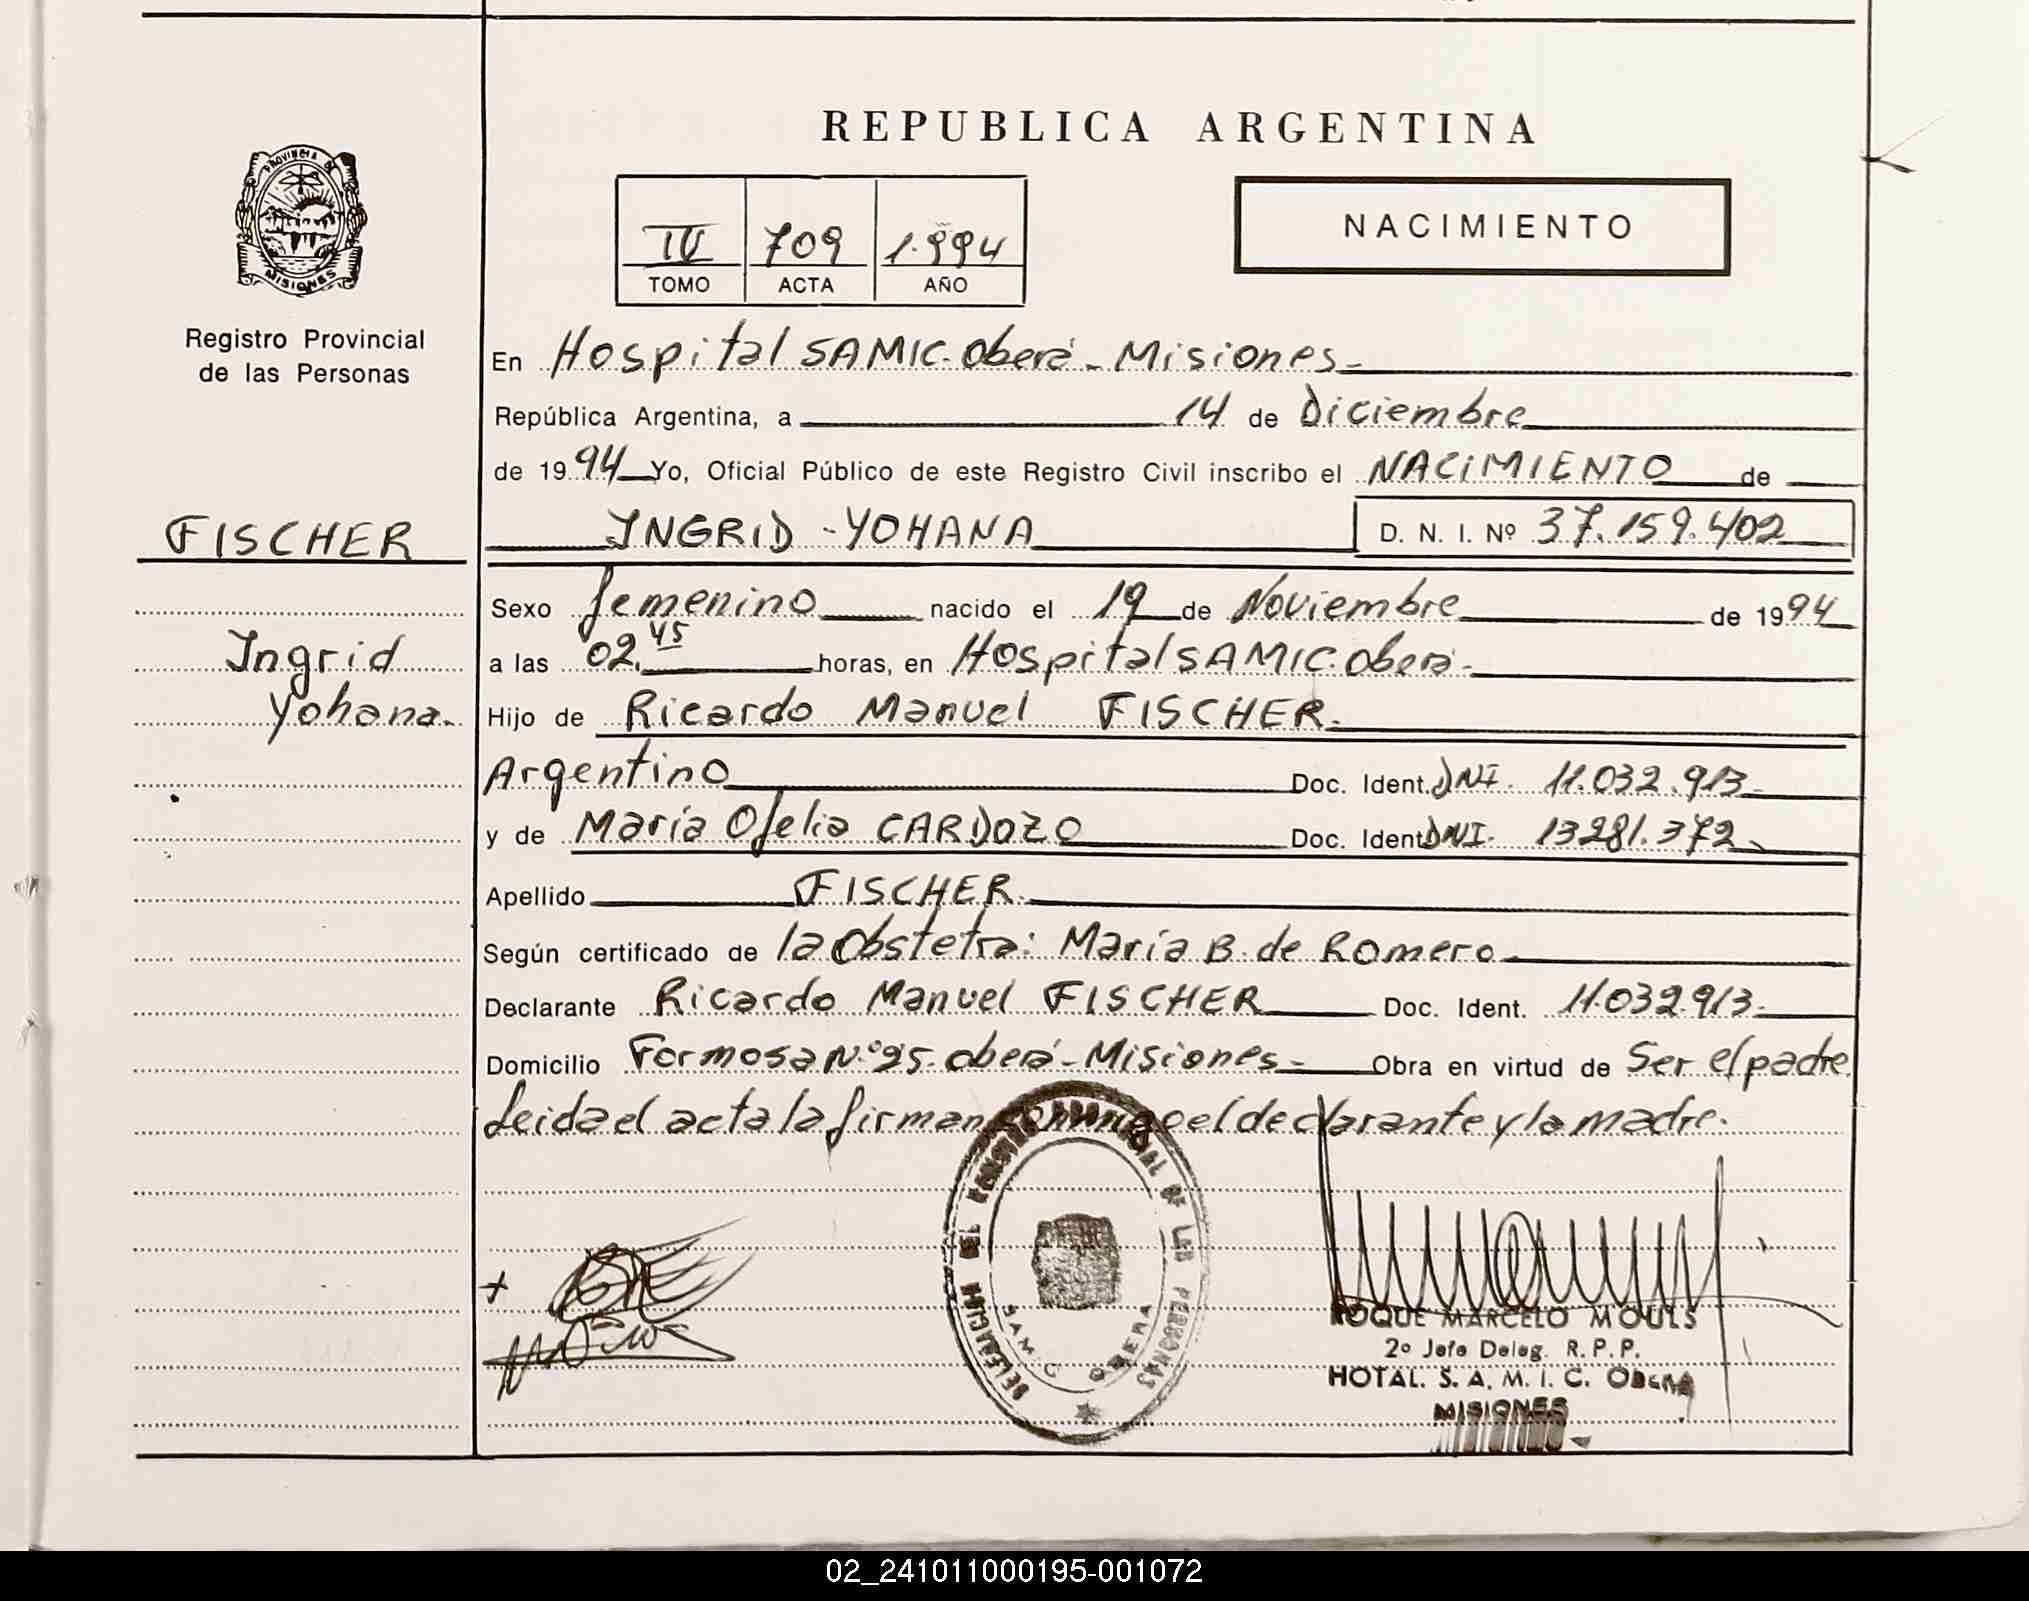 REPUBLICA ARGENTINA
PROVINCIA DE
MISIONES
Registro Provincial
de las Personas
IV 709 1.994
TOMO ACTA AÑO
NACIMIENTO
En Hospital SAMIC. Oberá - Misiones -
República Argentina, a 14 de Diciembre
de 1994 Yo, Oficial Público de este Registro Civil inscribo el NACIMIENTO de
FISCHER
INGRID - YOHANA D. N. I. Nº 37.159.402
Sexo femenino nacido el 19 de Noviembre de 1994
Ingrid
a las 02.45 horas, en Hospital SAMIC. Oberá -
Yohana.
Hijo de Ricardo Manuel FISCHER.
Argentino Doc. Ident. DNI. 11.032.913
y de María Ofelia CARDOZO Doc. Ident DNI. 13281.372
Apellido FISCHER.
Según certificado de la Obstetra: María B. de Romero
Declarante Ricardo Manuel FISCHER Doc. Ident. 11.032.913-
Domicilio Formosa N.º 95. Oberá - Misiones - Obra en virtud de Ser el padre
Leida el acta la firman conmigo el declarante y la madre.
DELEGACION DEL REGISTRO PROVINCIAL DE LAS PERSONAS
S.A.M.I.C OBERA
ROQUE MARCELO MOULS
2º Jefe Deleg. R. P. P.
HOTAL. S. A. M. I. C. OBERA
MISIONES
02_241011000195-001072